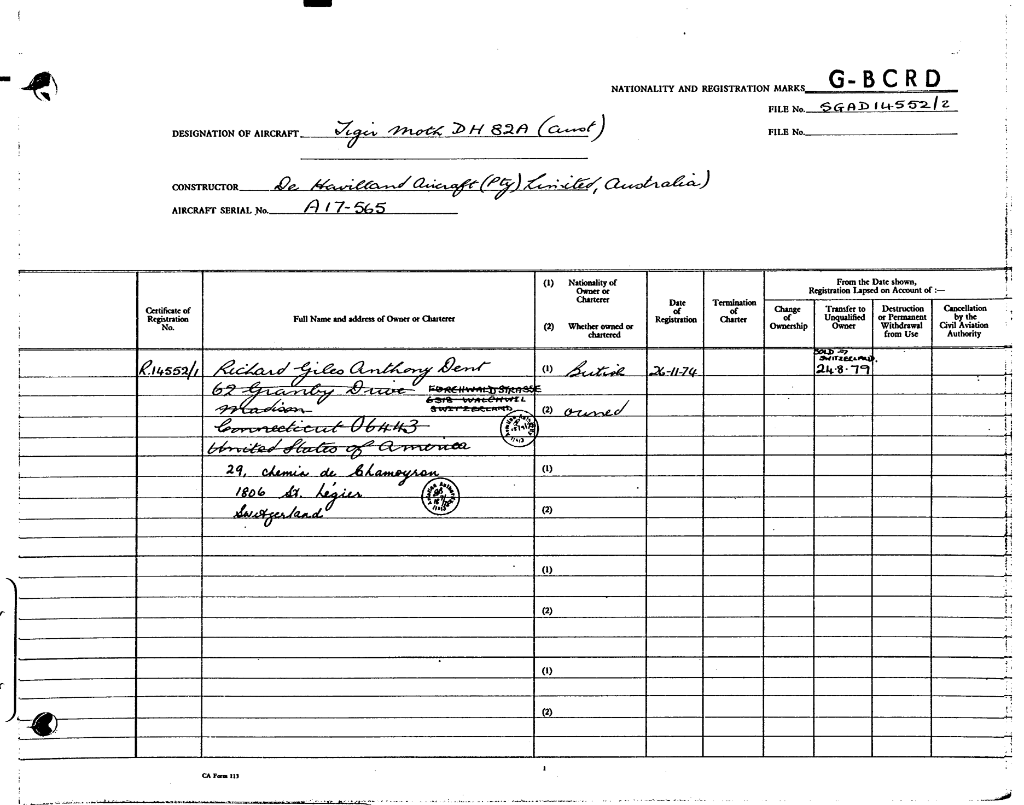 NATIONALITY AND REGISTRATION MARKS G-BCRD
FILE No. SGAD14552/2
DESIGNATION OF AIRCRAFT Tiger Moth DH 82A (Aust)
FILE No.
CONSTRUCTOR De Havilland Aircraft (Pty) Limited, Australia)
AIRCRAFT SERIAL No. A17-565
Certificate of Registration No.
Full Name and address of Owner or Charterer
(1) Nationality of Owner or Charterer
(2) Whether owned or chartered
Date of Registration
Termination of Charter
From the Date shown, Registration Lapsed on Account of :—
Change of Ownership
Transfer to Unqualified Owner
Destruction or Permanent Withdrawal from Use
Cancellation by the Civil Aviation Authority
R.14552/1 Richard Giles Anthony Dent (1) British 26-11-74 SOLD IN SWITZERLAND. 24.8.79
62 Granby Drive FORCHWALDSTRASSE
6318 WALCHWIL
Madison SWITZERLAND (2) owned
Connecticut 06443
United States of America
29, Chemin de Chamoyron (1)
1806 St. Légier
Switzerland (2)
(1)
(2)
(1)
(2)
CA Form 113
1